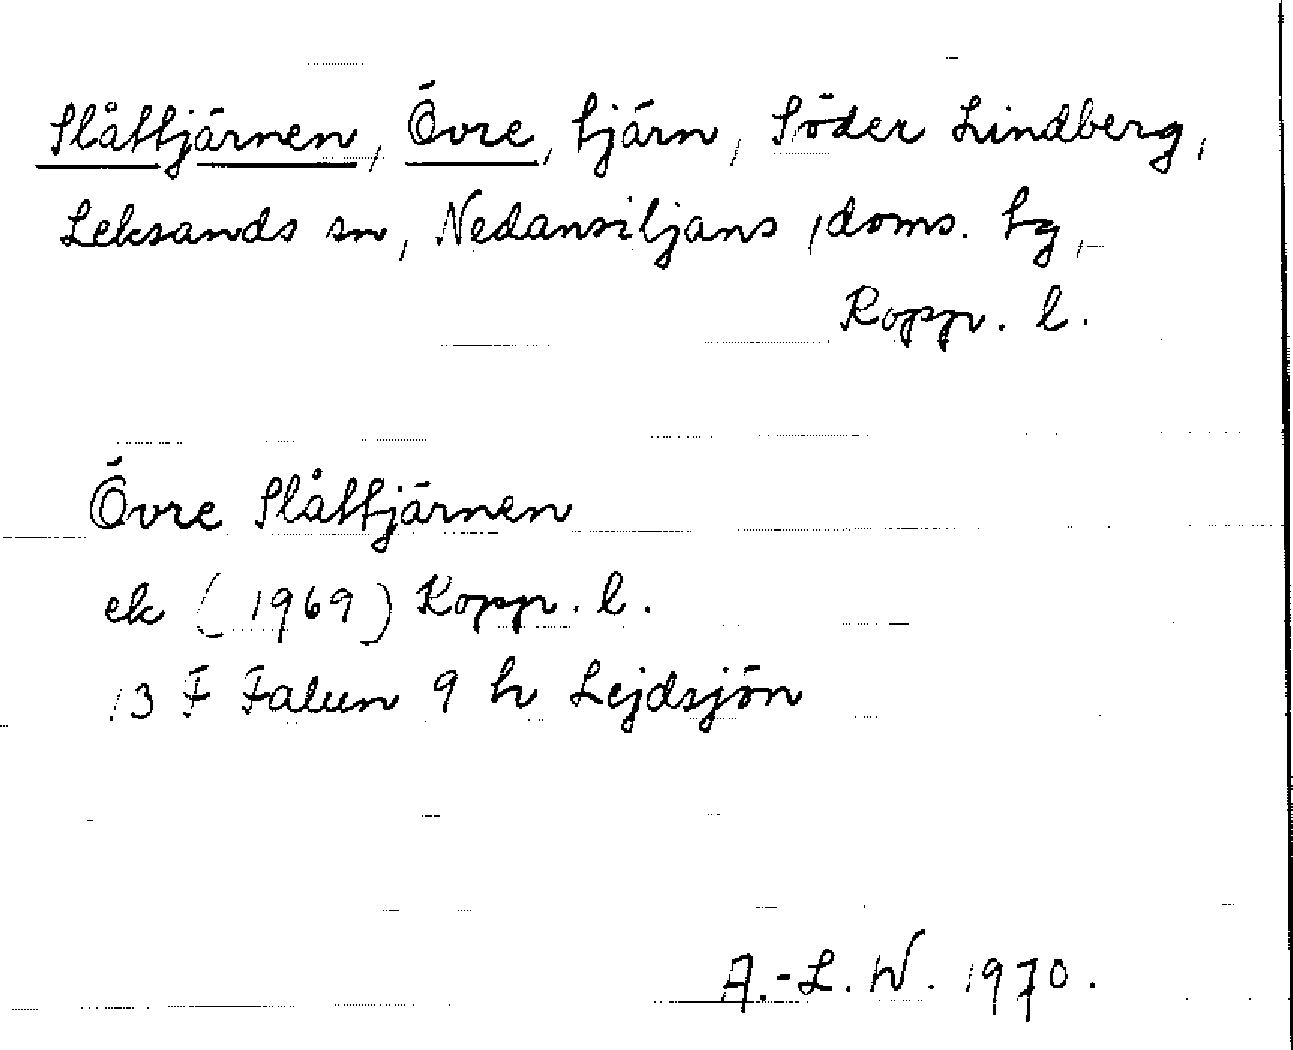 Slåttjärnen, Övre, tjärn, Söder Lindberg,
Leksands sn, Nedansiljans doms. tg,
Kopp. l.
Övre Slåttjärnen
ek (1969) Kopp. l.
13 F Falun 9 h Lejdsjön
A.-L. W. 1970.